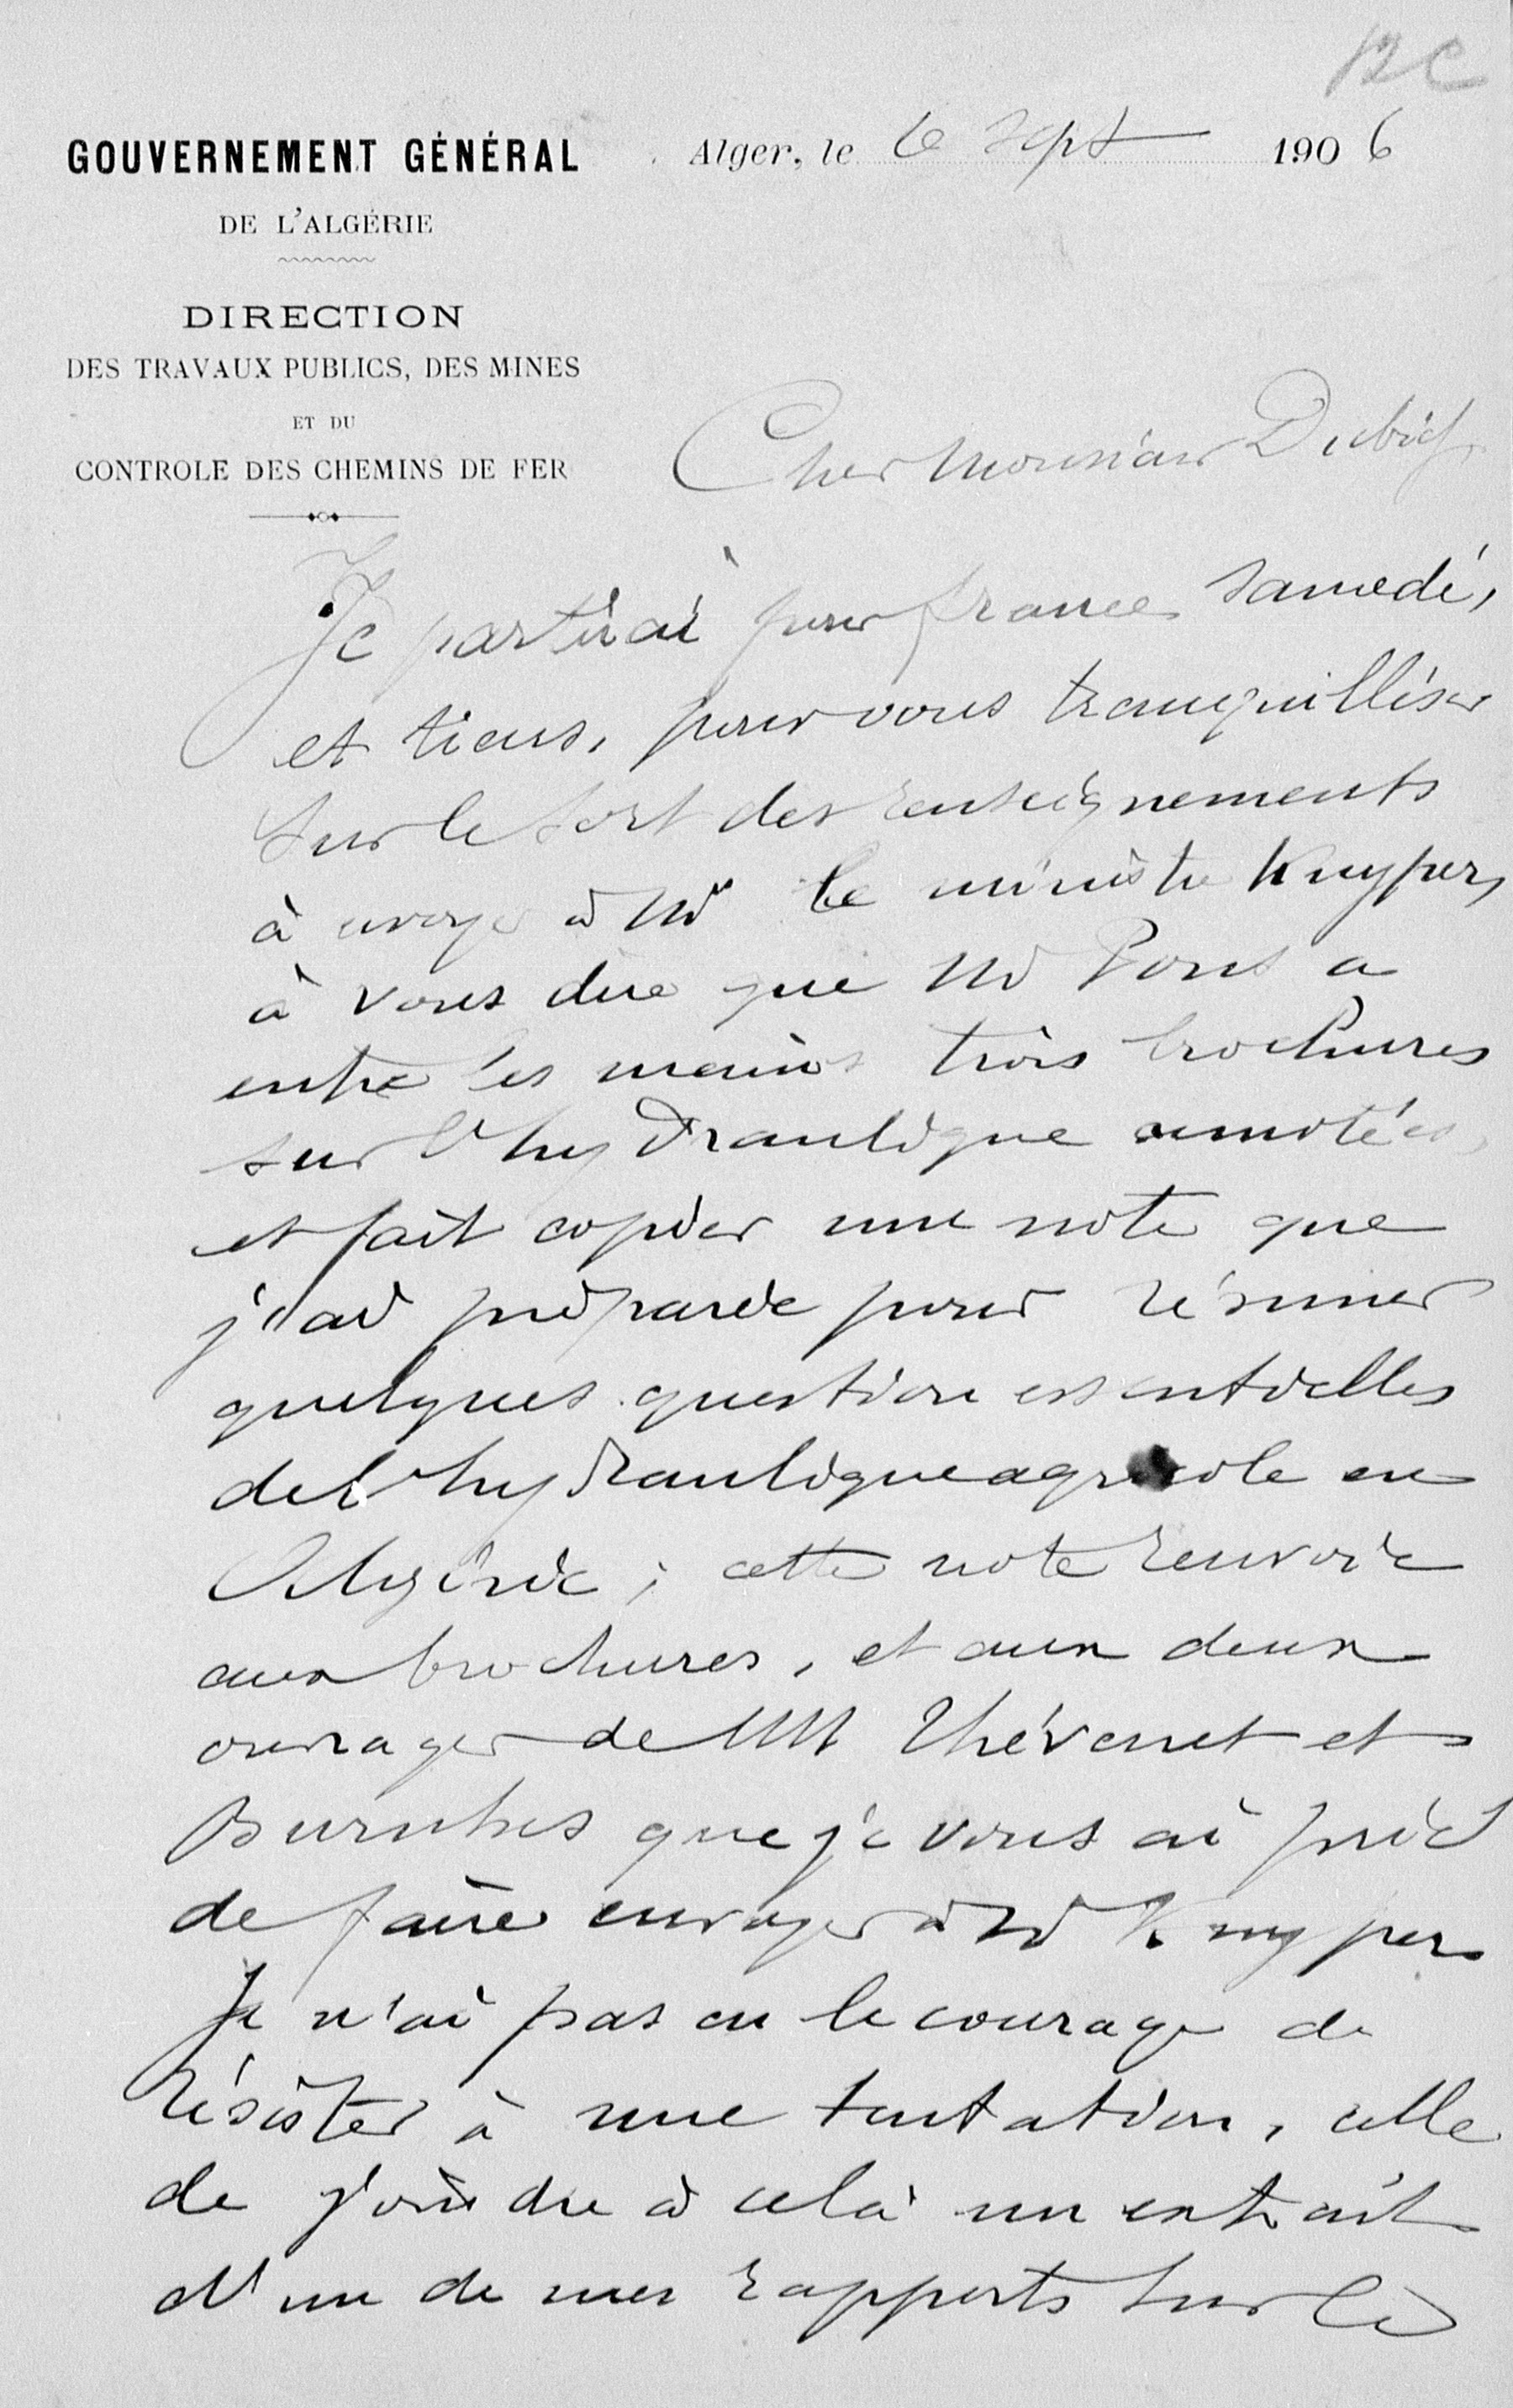 12c
GOUVERNEMENT GÉNÉRAL
DE L'ALGÉRIE
DIRECTION
DES TRAVAUX PUBLICS, DES MINES
ET DU
CONTROLE DES CHEMINS DE FER
Alger, le 6 sept 1906
Cher Monsieur
Je partirai pour france samedi,
et tiens, pour vous tranquilliser
sur le sort des renseignements
à envoyer à Mr le ministre Kuyper,
à vous dire que Mr Pons a
entre les mains trois brochures
sur l'hydraulique annotées,
et fait copier une note que
j'ai préparée pour résumer
quelques question essentielles
de l'hydraulique agricole en
Algérie ; cette note renvoie
aux brochures, et aux deux
ouvrages de MM Thévenet et
que je vous ai prié
de faire envoyer à Mr Kuyper
Je n'ai pas eu le courage de
résister à une tentation, celle
de joindre à celà un extrait
d'un de mes rapports sur